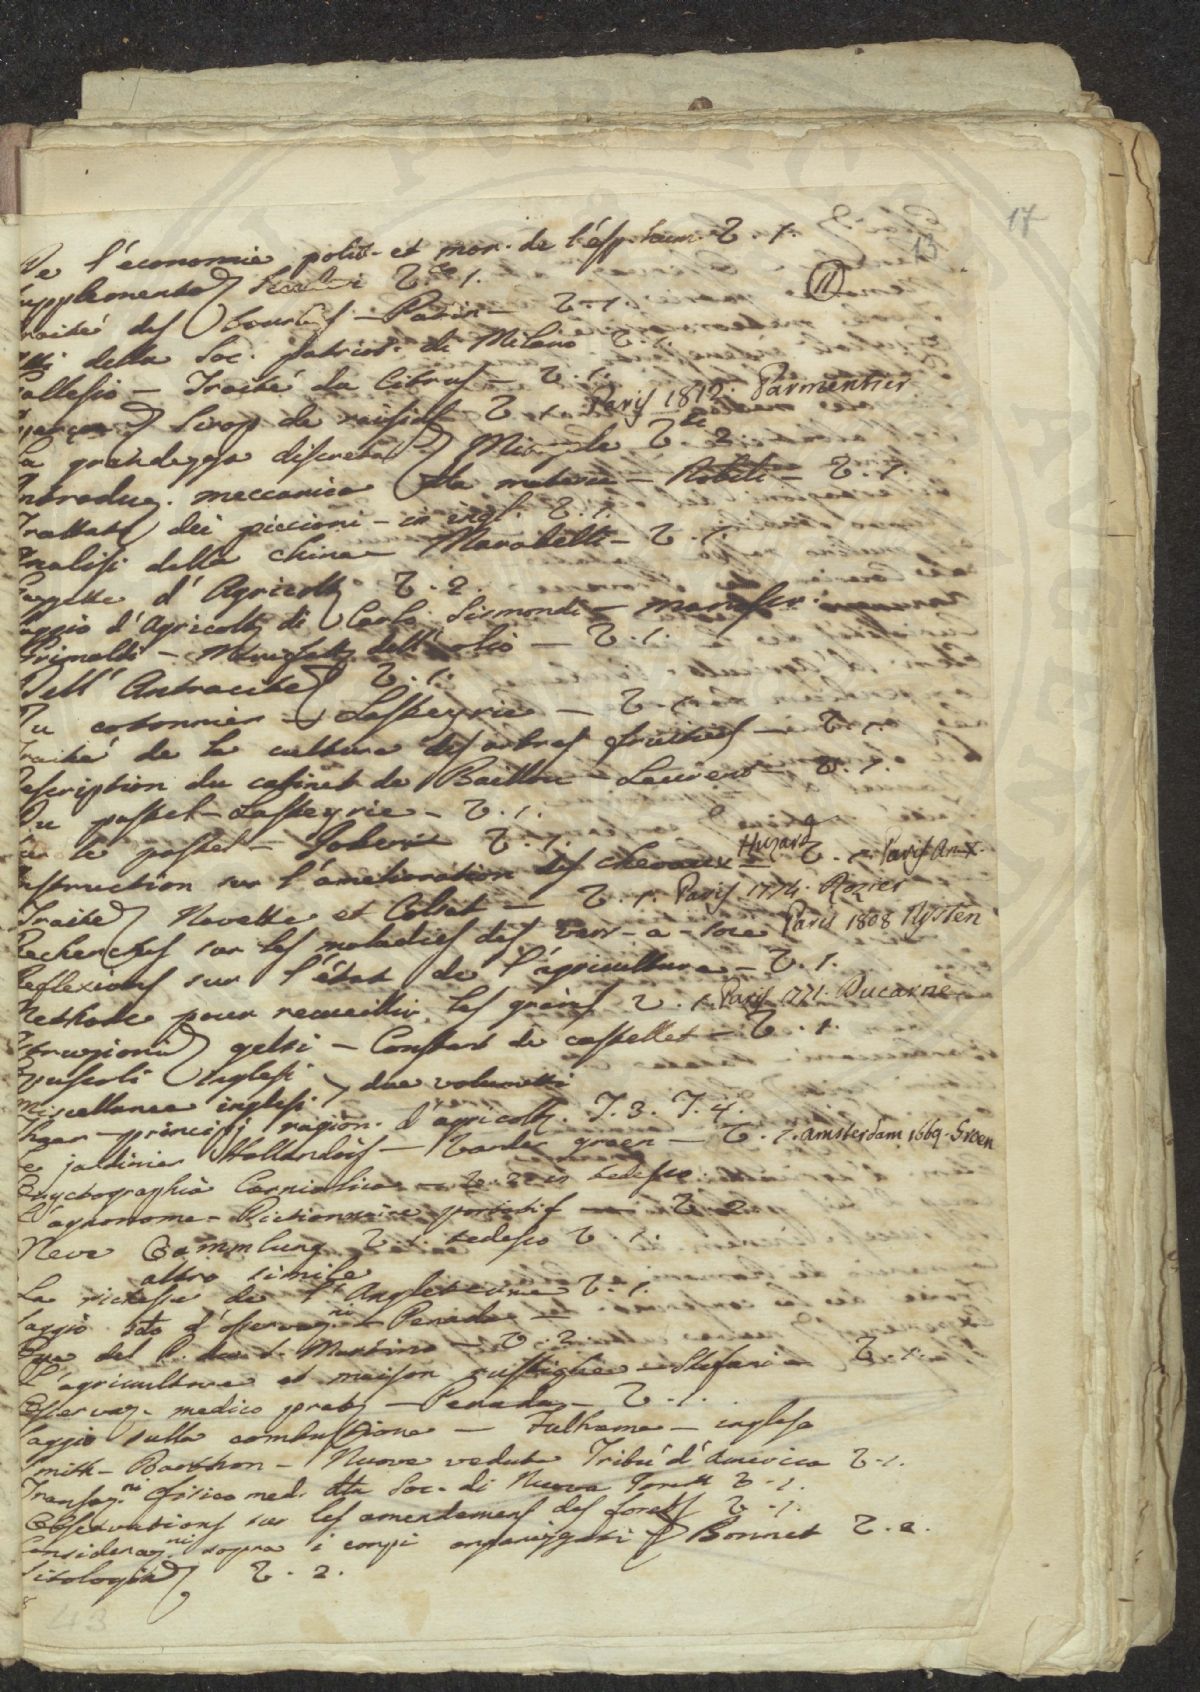 17
13
11
De l'économie polit. et mor. de l'esp. hum. T. 1.
Supplemento T. 1.
Traité des T. 1.
Atti della Soc. patriot. di Milano T. 1.
Gallesio — Traité du Citrus — T. 1.
Sirop de raisins T. 1. Paris 1812. Parmentier
La grandezza discreta T. 2
Introduz. meccanica della materia — T. 1.
Trattato dei piccioni — in ingl. T. 1.
Analisi della china — Marabelli — T. 1.
Gazzette d'Agricolt. T. 2.
Saggio d'Agricolt. di Carlo Sismondi — manoscr.
Grimaldi — Manifatt. dell'olio — T. 1.
Dell'Antracite T. 1.
Du cotonnier — Lasteyrie — T. 1.
Traité de la culture des arbres fruitiers — T. 1.
Description du cabinet de Baillou — T. 1.
Du pastel — Lasteyrie — T. 1.
Sur le pastel — T. 1.
Instruction sur l'amelioration des chevaux — Huzard T. 1. Paris An X.
Traité Navette et Colsat — T. 1. Paris 1774. Rozier
Recherches sur les maladies des vers-a-soie Paris 1808 Nysten
Reflexions sur l'état de l'agriculture — T. 1.
Methode pour recueillir les grains T. 1. Paris 1771. Ducarne
Istruzioni gelsi — Constant de castellet — T. 1.
Opuscoli inglesi
Miscellanee inglesi } due volumetti
Thaer — principj ragion. d'agricolt. T. 3. T. 4.
Le jardinier Hollandois — Vander groen — T. 1. Amsterdam 1669. Groen
Oryctographia Carniolica — T. 2 in tedesco
L'agronome — Dictionnaire portatif — T. 2
Neue Sammlung T. 1. tedesco T. 1.
altro simile
La richesse de l'Angleterre T. 1.
Saggio d'osservaz.ni — Penada —
del P. da S. Martino — T. 2.
L'agriculture et maison rustique — Stefani — T. 1.
Osservaz. medico prat. — Penada — T. 1.
Saggio sulla combustione — Fulhame — inglese
Smith-Barthon — Nuove vedute Tribù d'America T. 1.
Transaz.ni fisico med. della Soc. di Nuova York T. 1.
Observations sur les amendemens des forets T. 1.
Consideraz.ni sopra i corpi organizzati Bonnet T. 2.
Sitologia T. 2.
43